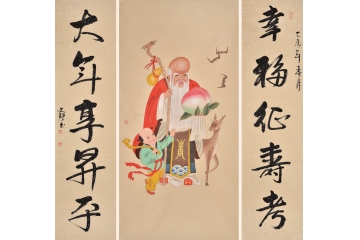 幸福征壽考
乙未年春月
大年享昇平